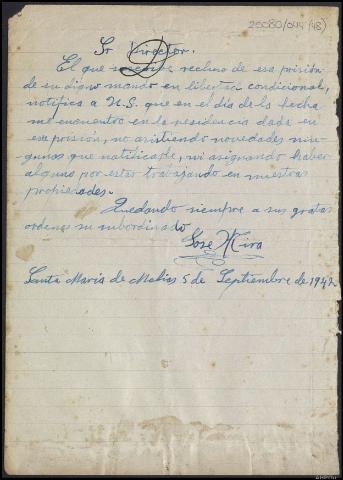 25080/044 (48)
Sr Director.
El que suscribe recluso de esa prisión
de su digno mando en libertad condicional,
notifica a U.S. que en el día de la fecha
me encuentro en la residencia dada en
esa prisión, no asistiendo novedades nin-
gunas que notificarle, ni asignando haber
alguno por estar trabajando en nuestras
propiedades.
Quedando siempre a sus gratas
ordenes su subordinado
Jose Mira
Santa Maria de 5 de Septiembre de 1942